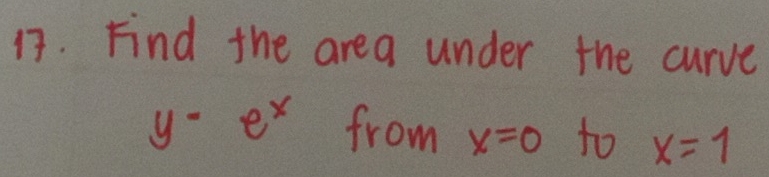 17. Find the area under the curve
y - e^x from x=0 to x=1